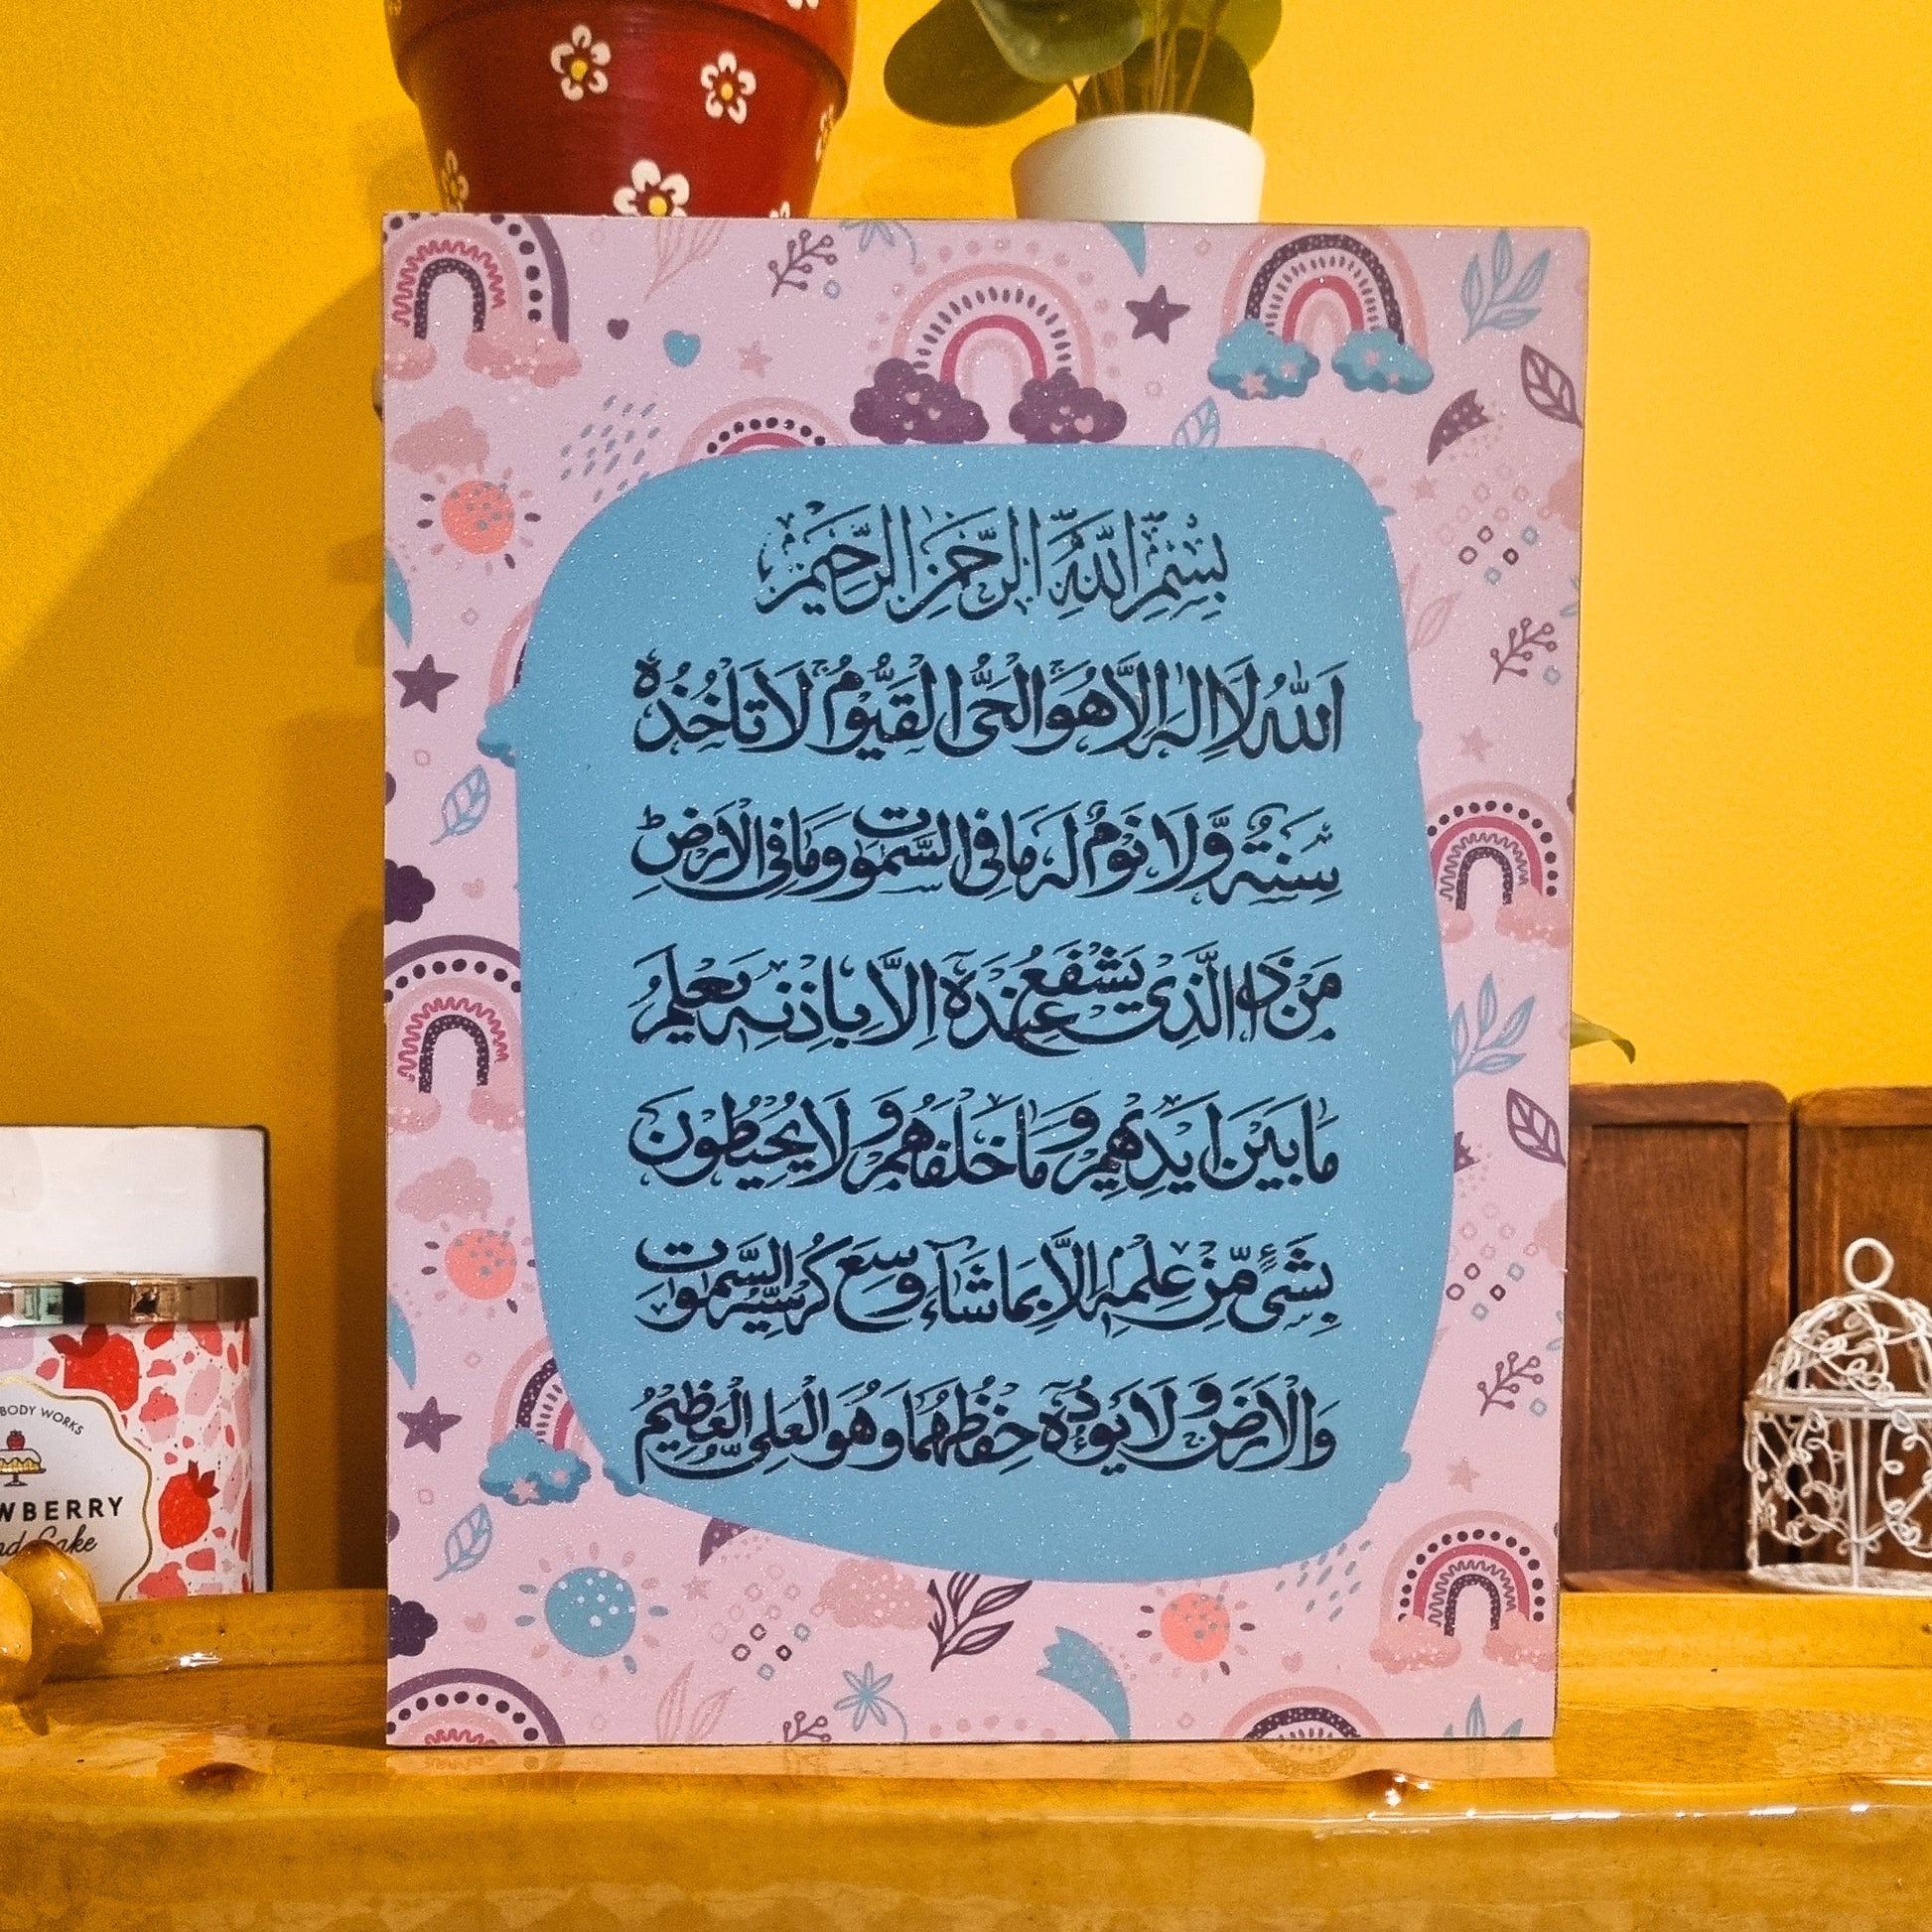 بِسْمِ اللّٰهِ الرَّحْمٰنِ الرَّحِيْمِ
اَللّٰهُ لَاۤ اِلٰهَ اِلَّا هُوَ الْحَىُّ الْقَيُّوْمُ لَا تَاْخُذُهٗ
سِنَةٌ وَّلَا نَوْمٌ لَهٗ مَا فِى السَّمٰوٰتِ وَمَا فِى الْاَرْضِؕ
مَنْ ذَا الَّذِىْ يَشْفَعُ عِنْدَهٗۤ اِلَّا بِاِذْنِهٖ يَعْلَمُ
مَا بَيْنَ اَيْدِيْهِمْ وَمَا خَلْفَهُمْ وَلَا يُحِيْطُوْنَ
بِشَىْءٍ مِّنْ عِلْمِهٖۤ اِلَّا بِمَا شَآءَ وَسِعَ كُرْسِيُّهُ السَّمٰوٰتِ
وَالْاَرْضَ وَلَا يَـُٔوْدُهٗ حِفْظُهُمَا وَهُوَ الْعَلِىُّ الْعَظِيْمُ
BODY WORKS